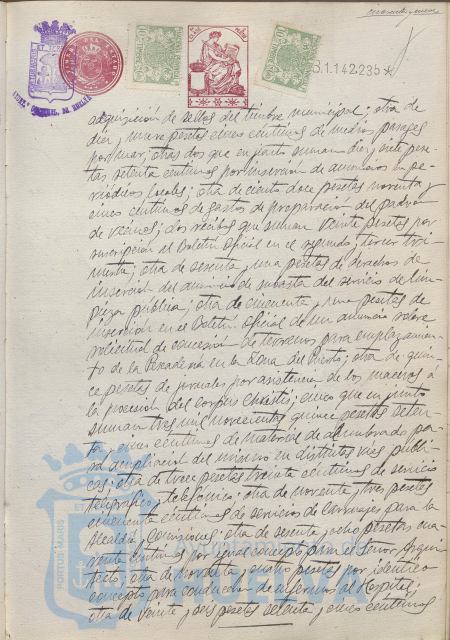 cuarenta y nueve
B.1.142.235*
adquisición de sellos del timbre municipal; otra de
diez y nueve pesetas cinco céntimos de medios pasajes
por mar; otras dos que en junto suman diez y siete pese-
tas setenta céntimos por inserción de anuncios en pe-
riódicos locales; otra de ciento doce pesetas noventa y
cinco céntimos de gastos de preparación del padrón
de vecinos; dos recibos que suman veinte pesetas por
suscripción al Boletín Oficial en el segundo y tercer tri-
mestre; otra de sesenta y una pesetas de derechos de
inserción del anuncio de subasta del servicio de lim-
pieza pública; otra de cincuenta y una pesetas de
inserción en el Boletín Oficial de un anuncio sobre
solicitud de concesión de terrenos para emplazamien-
to de la Pescadería en la Zona del Puerto; otra de quin-
ce pesetas de jornales por asistencia de los maceros á
la procesión del Corpus Christi; cinco que en junto
suman tres mil novecientas quince pesetas seten-
ta y cinco céntimos de material de alumbrado pa-
ra ampliación del mismo en distintas vías públi-
cas; otra de trece pesetas treinta céntimos de servicio
telegráfico y telefónico; otra de noventa y tres pesetas
cincuenta céntimos de servicios de carruajes para la
Alcaldía y comisiones; otra de sesenta y ocho pesetas cua-
renta céntimos por igual concepto para el Señor Arqui-
tecto; otra de noventa y cuatro pesetas por idéntico
concepto para conducción de enfermos al Hospital;
otra de veinte y seis pesetas setenta y cinco céntimos
PORTUS MARIS
HUELVA